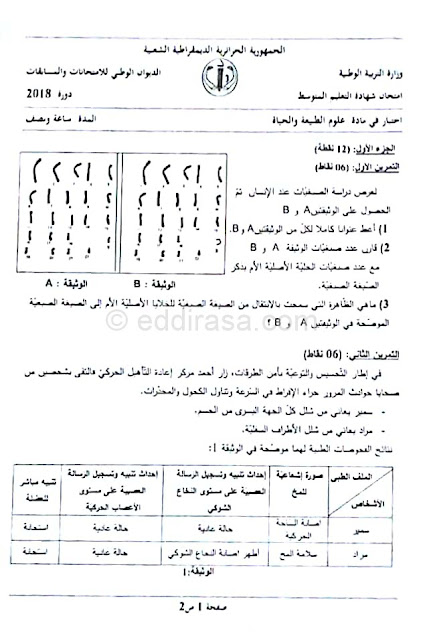 الجمهورية الجزائرية الديمقراطية الشعبية
وزارة التربية الوطنية
الديوان الوطني للامتحانات والمسابقات
امتحان شهادة التعليم المتوسط
دورة 2018
اختبار في مادة علوم الطبيعة والحياة
المدة ساعة ونصف
الجزء الأول: (12 نقطة)
التمرين الأول: (06 نقاط)
لغرض دراسة الصبغيات عند الإنسان تمّ
الحصول على الوثيقتين A و B
1) أعط عنوانا كاملا لكلّ من الوثيقتين A و B.
2) قارن عدد صبغيات الوثيقة A و B
مع عدد صبغيات الخلية الأصلية الأم بذكر
الصيغة الصبغية.
الوثيقة : B
الوثيقة : A
3) ما هي الظّاهرة التي سمحت بالانتقال من الصيغة الصبغية للخلايا الأصلية الأم إلى الصيغة الصبغية
الموضحة في الوثيقتين A و B ؟
© eddirasa.com
التمرين الثاني: (06 نقاط)
في إطار التّحسيس والتوعية بأمن الطرقات، زار أحمد مركز إعادة التأهيل الحركيّ والتقى بشخصين من
ضحايا حوادث المرور جراء الإفراط في السّرعة وتناول الكحول والمخدّرات.
- سمير يعاني من شلل كلّ الجهة اليسرى من الجسم.
- مراد يعاني من شلل الأطراف السفلية.
نتائج الفحوصات الطبية لهما موضحة في الوثيقة 1:
الملف الطبي
الأشخاص
صورة إشعاعية للمخ
إحداث تنبيه وتسجيل الرسالة العصبية على مستوى النخاع الشوكي
إحداث تنبيه وتسجيل الرسالة العصبية على مستوى الأعصاب الحركية
تنبيه مباشر للعضلة
سمير
إصابة الساحة الحركية
حالة عادية
حالة عادية
استجابة
مراد
سلامة المخ
أظهر إصابة النخاع الشوكي
حالة عادية
استجابة
الوثيقة:1
صفحة 1 من 2